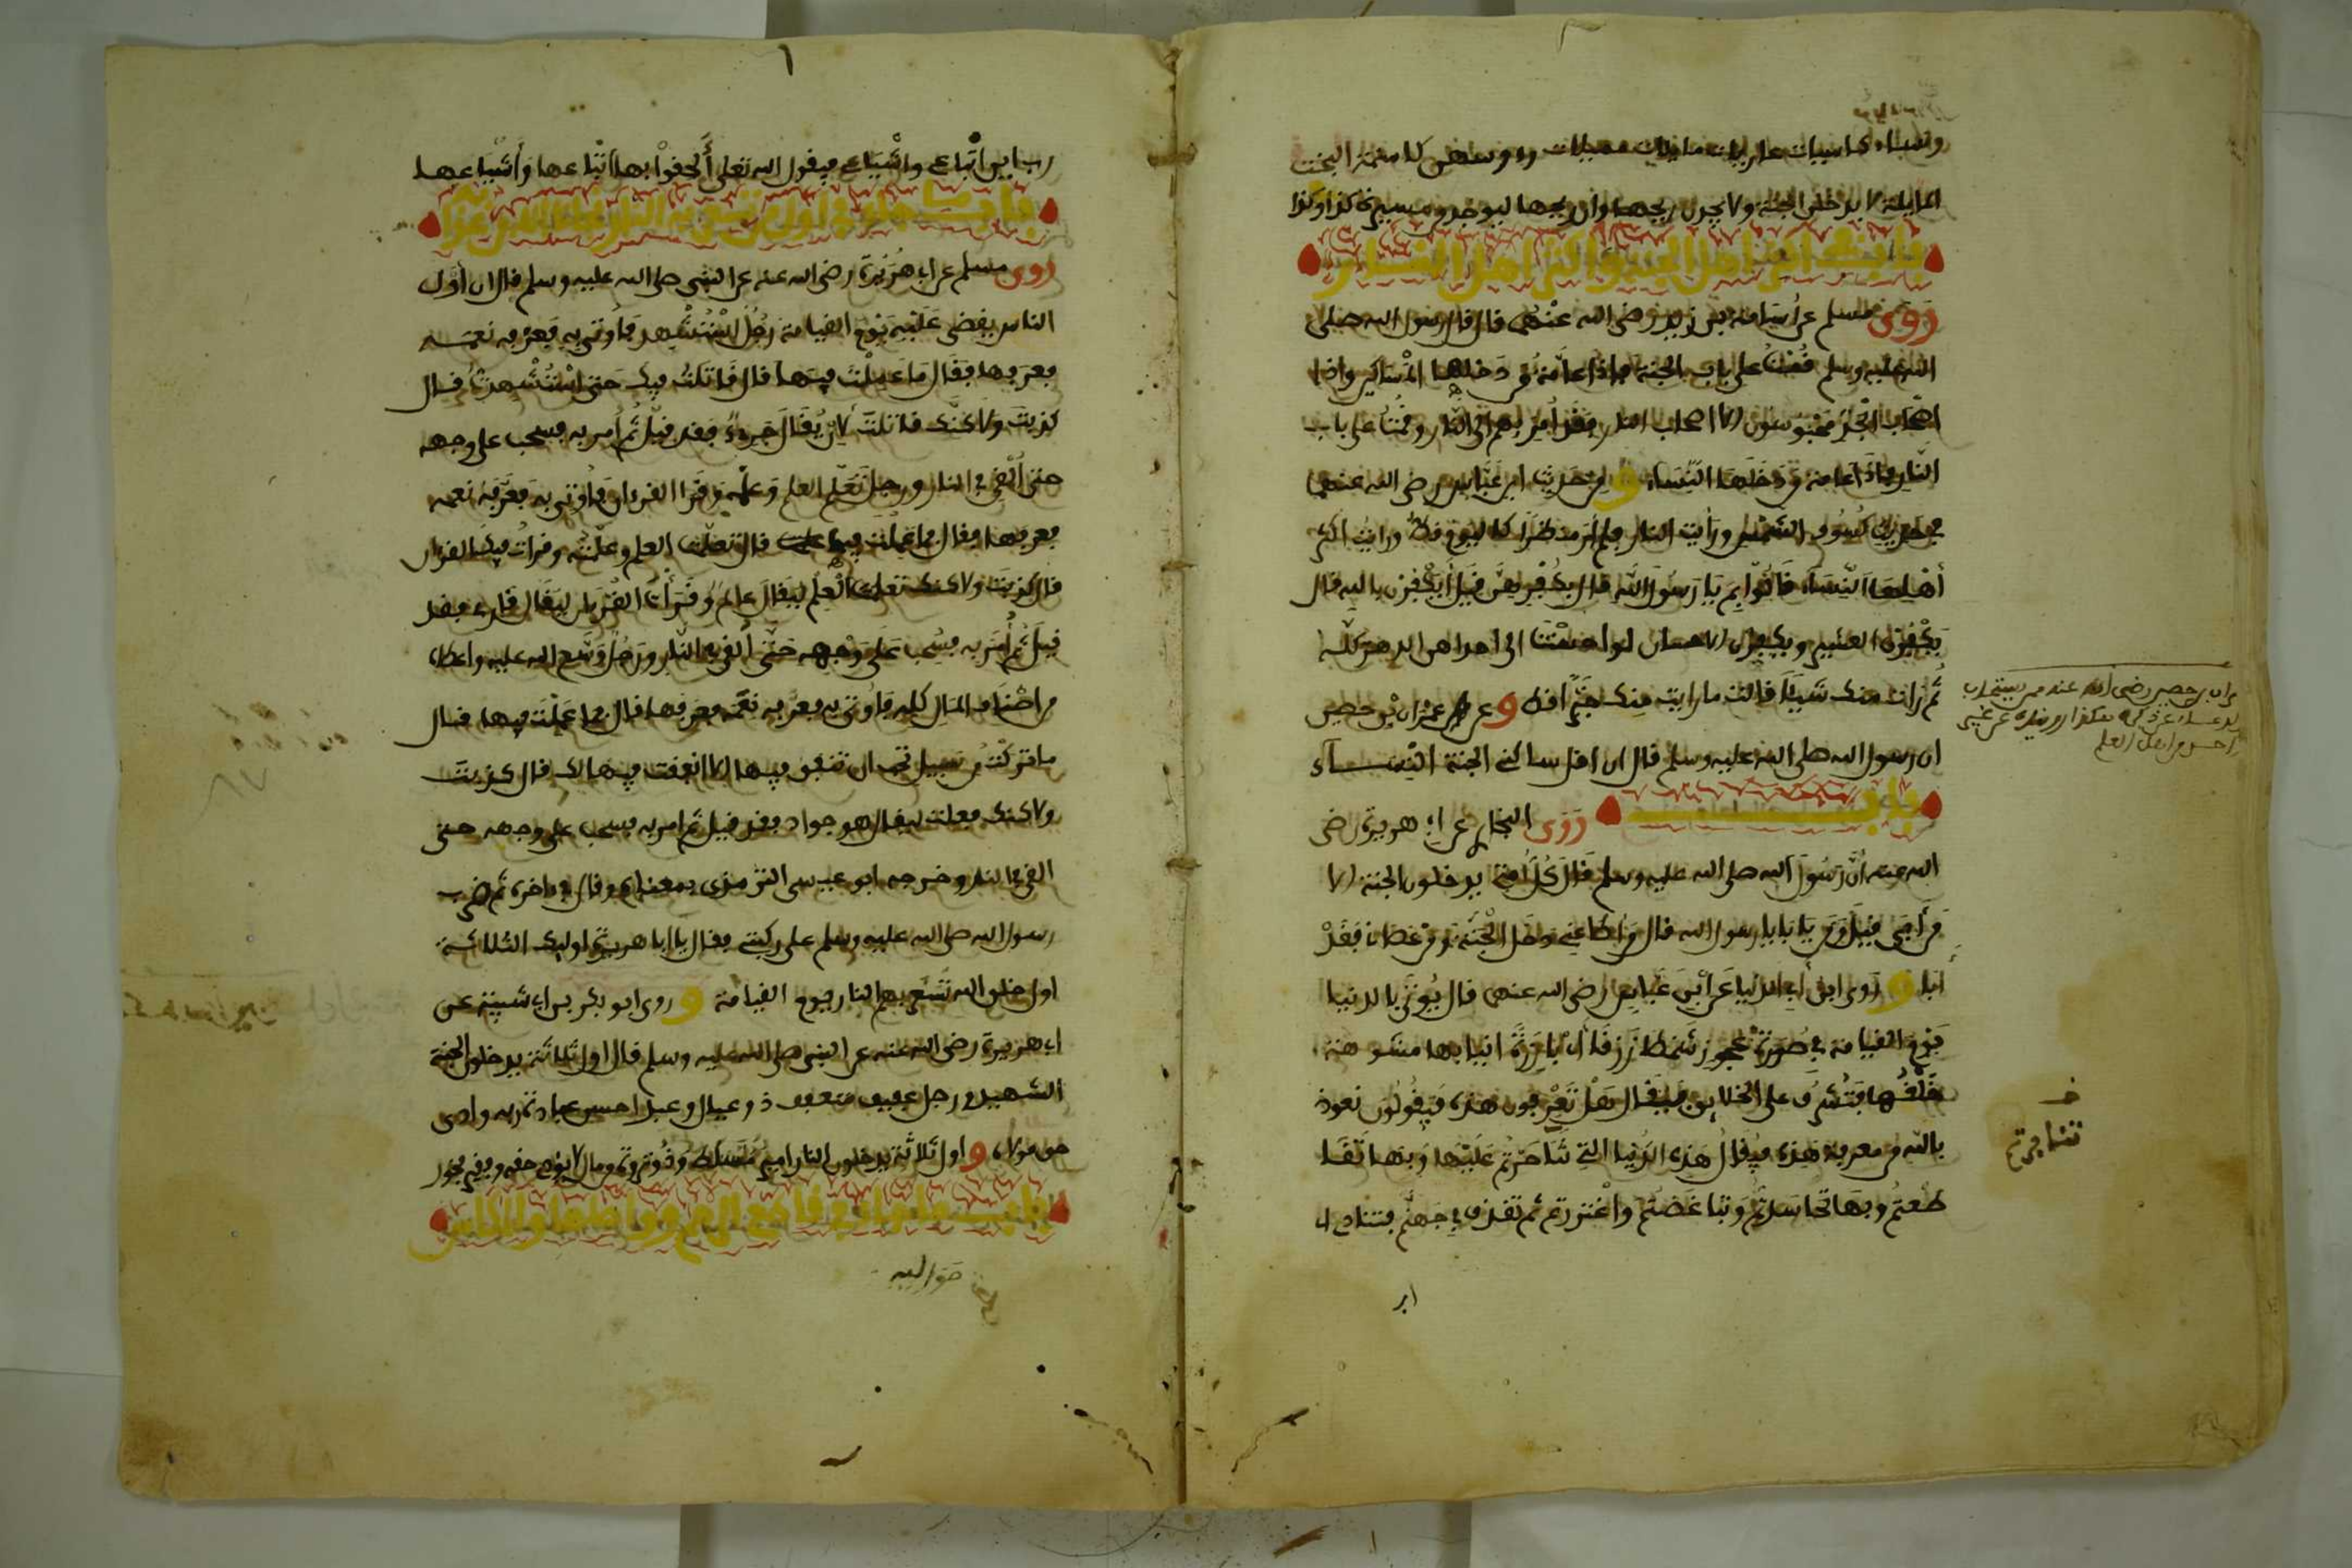 ونساء كاسيات عاريات مايلات مميلات رءوسهن كاسنمة البخت
المايلة لا يدخلن الجنة ولا يجدن ريحها وان ريحها ليوجد من مسيرة كذا وكذا
باب منه في اكثر اهل الجنة واكثر اهل النار
روى مسلم عن اسامة بن زيد رضي الله عنهما قال قال رسول الله صلى
الله عليه وسلم قمت على باب الجنة فاذا عامة من دخلها المساكين واذا
اصحاب الجد محبوسون الا اصحاب النار فقد امر بهم الى النار وقمت على باب
النار فاذا عامة من دخلها النساء و من حديث ابن عباس رضي الله عنهما
في حديث كسوف الشمس ورأيت النار فلم أر منظرا كاليوم قط ورأيت اكثر
أهلها النساء قالوا بم يا رسول الله قال بكفرهن قيل أيكفرن بالله قال
يكفرن العشير ويكفرن الاحسان لو احسنت الى احداهن الدهر كله
ثم رات منك شيئا قالت ما رايت منك خيرا قط و عن عمران بن حصين
ان رسول الله صلى الله عليه وسلم قال ان اقل ساكني الجنة النساء
باب منه روى البخاري عن ابي هريرة رضي
الله عنه أن رسول الله صلى الله عليه وسلم قال كل أمتي يدخلون الجنة الا
من أبى قيل ومن يابا يا رسول الله قال من اطاعني دخل الجنة ومن عصاني فقد
ابا و روى ابن أبي الدنيا عن ابن عباس رضي الله عنهما قال يؤتى بالدنيا
يوم القيامة في صورة عجوز شمطا زرقا بارزة انيابها مشوهة
خلقها فتشرف على الخلايق فيقال هل تعرفون هذه فيقولون نعوذ
بالله من معرفة هذه فيقال هذه الدنيا التي تشاجرتم عليها وبها تقا
طعتم وبها تحاسدتم وتباغضتم واغتررتم ثم تقذف في جهنم فتنادي اي
رب اين اتباعي واشياعي فيقول الله تعلى ألحقوا بها اتباعها وأشياعها
باب ما جاء في اول من تسعر به النار
روى مسلم عن ابي هريرة رضي الله عنه عن النبي صلى الله عليه وسلم قال ان أول
الناس يقضى عليه يوم القيامة رجل استشهد فأوتي به فعرفه نعمته
فعرفها فقال ما عملت فيها قال قاتلت فيك حتى استشهدت قال
كذبت ولاكنك قاتلت لأن يقال جريء فقد قيل ثم أمر به فسحب على وجهه
حتى ألقي في النار ورجل تعلم العلم وعلمه وقرا القرءان فأوتي به فعرفه نعمه
فعرفها فقال ما عملت فيها قال تعلمت العلم وعلمته وقرأت فيك القرءان
قال كذبت ولاكنك تعلمت العلم ليقال عالم وقرأت القرءان ليقال قارئ فقد
قيل ثم أمر به فسحب على وجهه حتى ألقي في النار ورجل وسع الله عليه واعطاه
من اصناف المال كله فأوتي به فعرفه نعمه فعرفها قال ما عملت فيها قال
ما تركت من سبيل تحب ان تنفق فيها الا انفقت فيها لك قال كذبت
ولاكنك فعلت ليقال هو جواد فقد قيل ثم امر به فسحب على وجهه حتى
القي في النار وخرجه ابو عيسى الترمذي بمعناه وقال في ءاخره ثم ضرب
رسول الله صلى الله عليه وسلم على ركبتي فقال يا ابا هريرة اوليك الثلاثة
اول خلق الله تسعر بهم النار يوم القيامة و روى ابو بكر بن ابي شيبة عن
ابي هريرة رضي الله عنه عن النبي صلى الله عليه وسلم قال اول ثلاثة يدخلون الجنة
الشهيد ورجل عفيف متعفف ذو عيال وعبد احسن عبادة ربه وادى
حق مولاه و اول ثلاثة يدخلون النار امير متسلط وذو ثروة من مال لا يؤدي حقه وفقير فخور